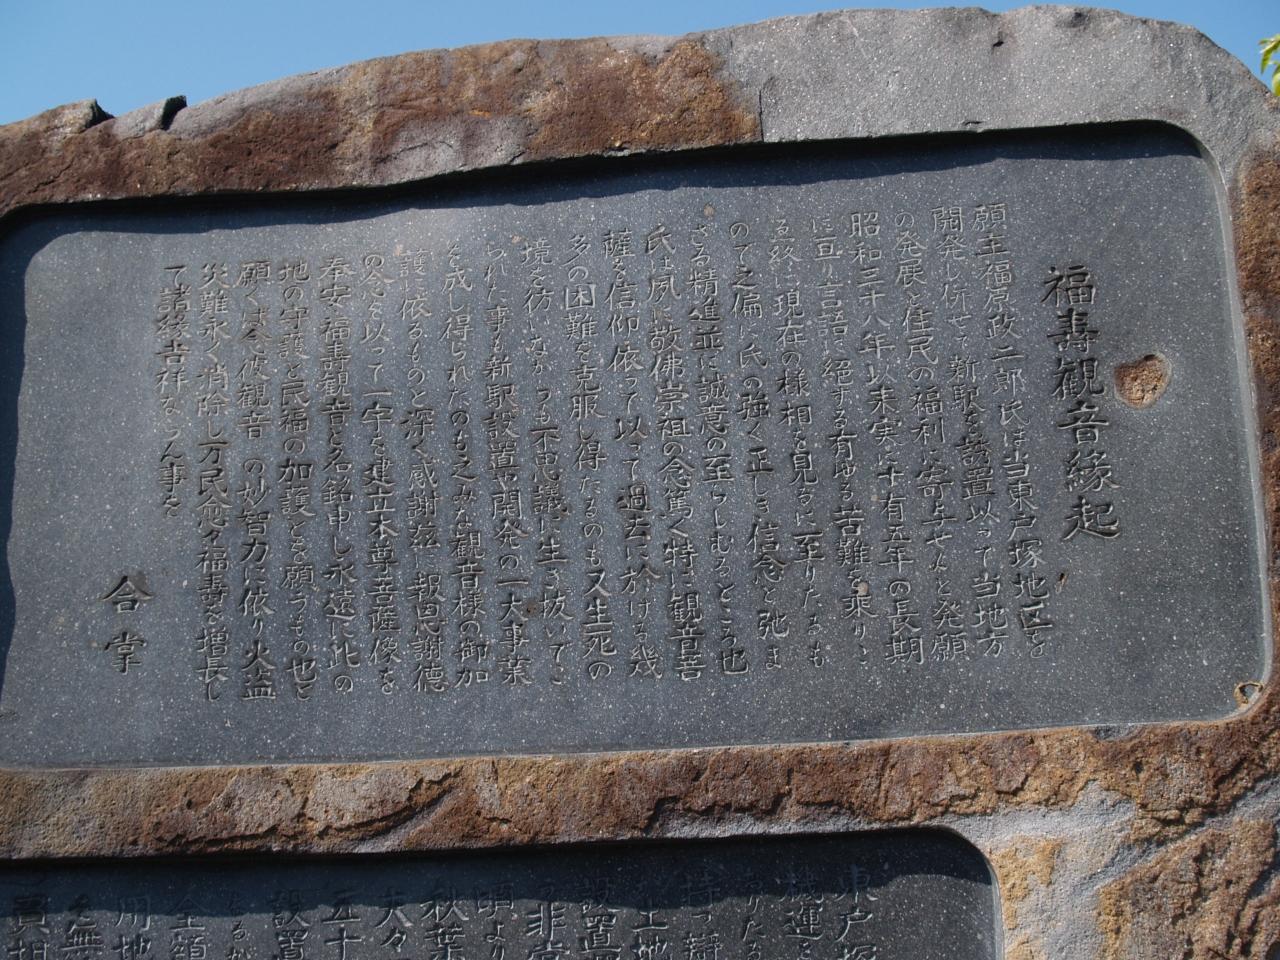 福壽観音縁起
願主福原政二郎氏は当東戸塚地区を
開発し併せて新駅を誘置以って当地方
の発展と住民の福利に寄与せんと発願
昭和三十八年以来実に十有五年の長期
に亘り言語に絶する有ゆる苦難を乗りこ
る玆に現在の様相を見るに至りたるも
のて之偏に氏の強く正しき信念と弛ま
ざる精進並に誠意の至らしむるところ也
氏は夙に敬佛崇祖の念篤く特に観音菩
薩を信仰依って以って過去に於ける幾
多の困難を克服し得たるのも又生死の
境を彷いながらも不思議に生き抜いてこ
られた事も新駅設置や開発の一大事業
を成し得られたのも之みな観音様の御加
護に依るものと深く感謝玆に報恩謝徳
の念を以って一宇を建立本尊菩薩像を
奉安し福壽観音と名銘申し永遠に此の
地の守護と民福の加護とを願うもの也
願くば念彼観音の妙智力に依り火盗
災難永く消除し万民愈々福壽を増長し
て諸縁吉祥ならん事を
合掌
東戸塚
機運と
なりたる
持つ
土地
設置
非常
頃より
秋葉
大々
五十
設置
全領
用地
を無
買相